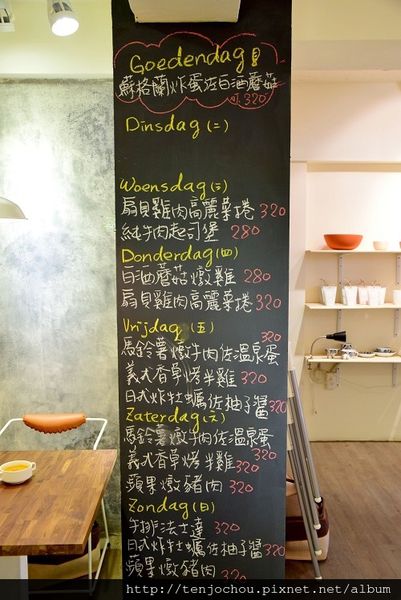 Goedendag
蘇格蘭炸蛋佐白酒蘑菇
320
Dinsdag (二)
Woensdag (三)
扇貝雞肉高麗菜捲 320
純牛肉起司堡 280
Donderdag (四)
白酒蘑菇燉雞 280
扇貝雞肉高麗菜捲 320
Vrijdag (五)
320
馬鈴薯燉牛肉佐溫泉蛋
義式香草烤半雞 320
日式炸牡蠣佐柚子醬 320
Zaterdag (六)
馬鈴薯燉牛肉佐溫泉蛋
320
義式香草烤半雞 320
蘋果燉豬肉 320
Zondag (日)
牛排法士達 320
日式炸牡蠣佐柚子醬 320
蘋果燉豬肉 320
http://tenjochou.pixnet.net/album